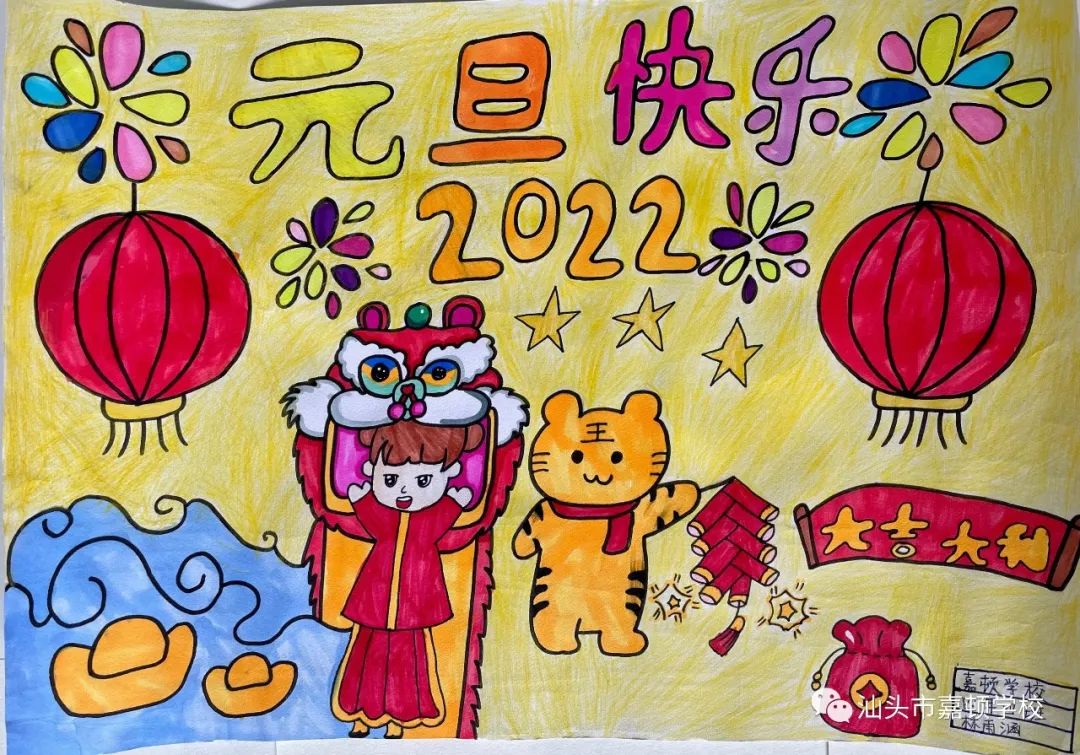 元旦快乐
2022
王
大吉大利
嘉顿学校
林雨涵
汕头市嘉顿学校